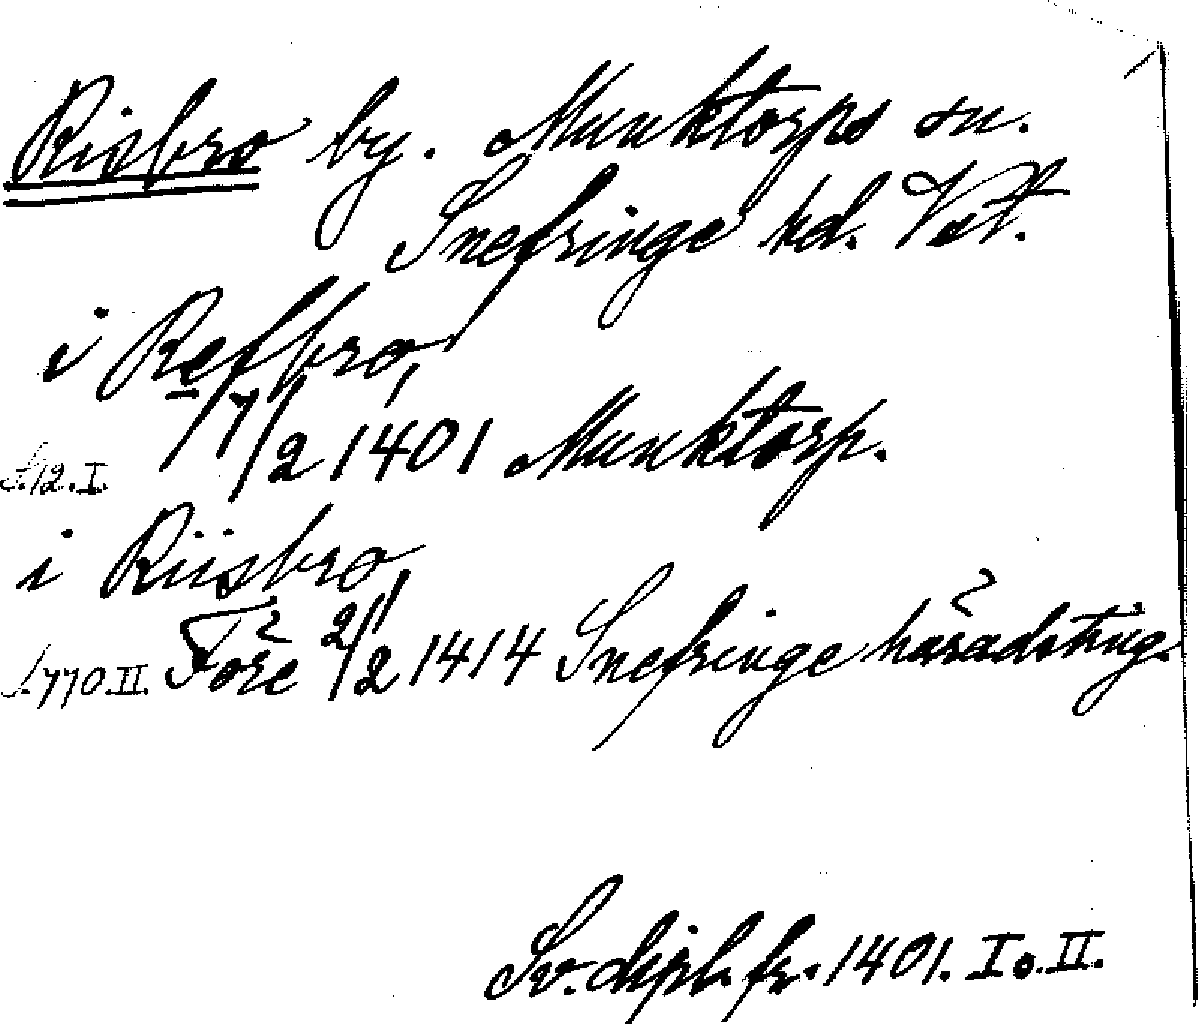 Risbro by. Munktorps sn.
Snefringe hd. Vst.
i Refbro,
S. 12. I. 17/2 1401 Munktorp.
i Riisbro,
S. 770. II. Före 2/2 1414 Snefringe häradsting.
Sv. dipl. fr. 1401. I o. II.